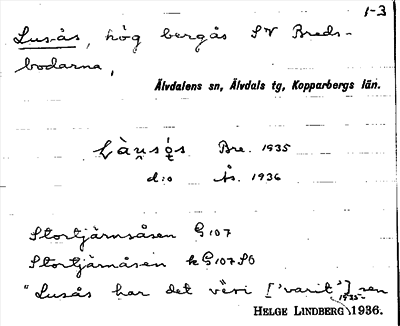 1-3
Lusås, hög bergås SV Breds-
bodarna,
Älvdalens sn, Älvdals tg, Kopparbergs län.
Bre. 1935
d:o Ås. 1936
Stortjärnsåsen G107
Stortjärnåsen kG107SO
"Lusås har det vėri ['varit'] sen
1935
HELGE LINDBERG 1936.